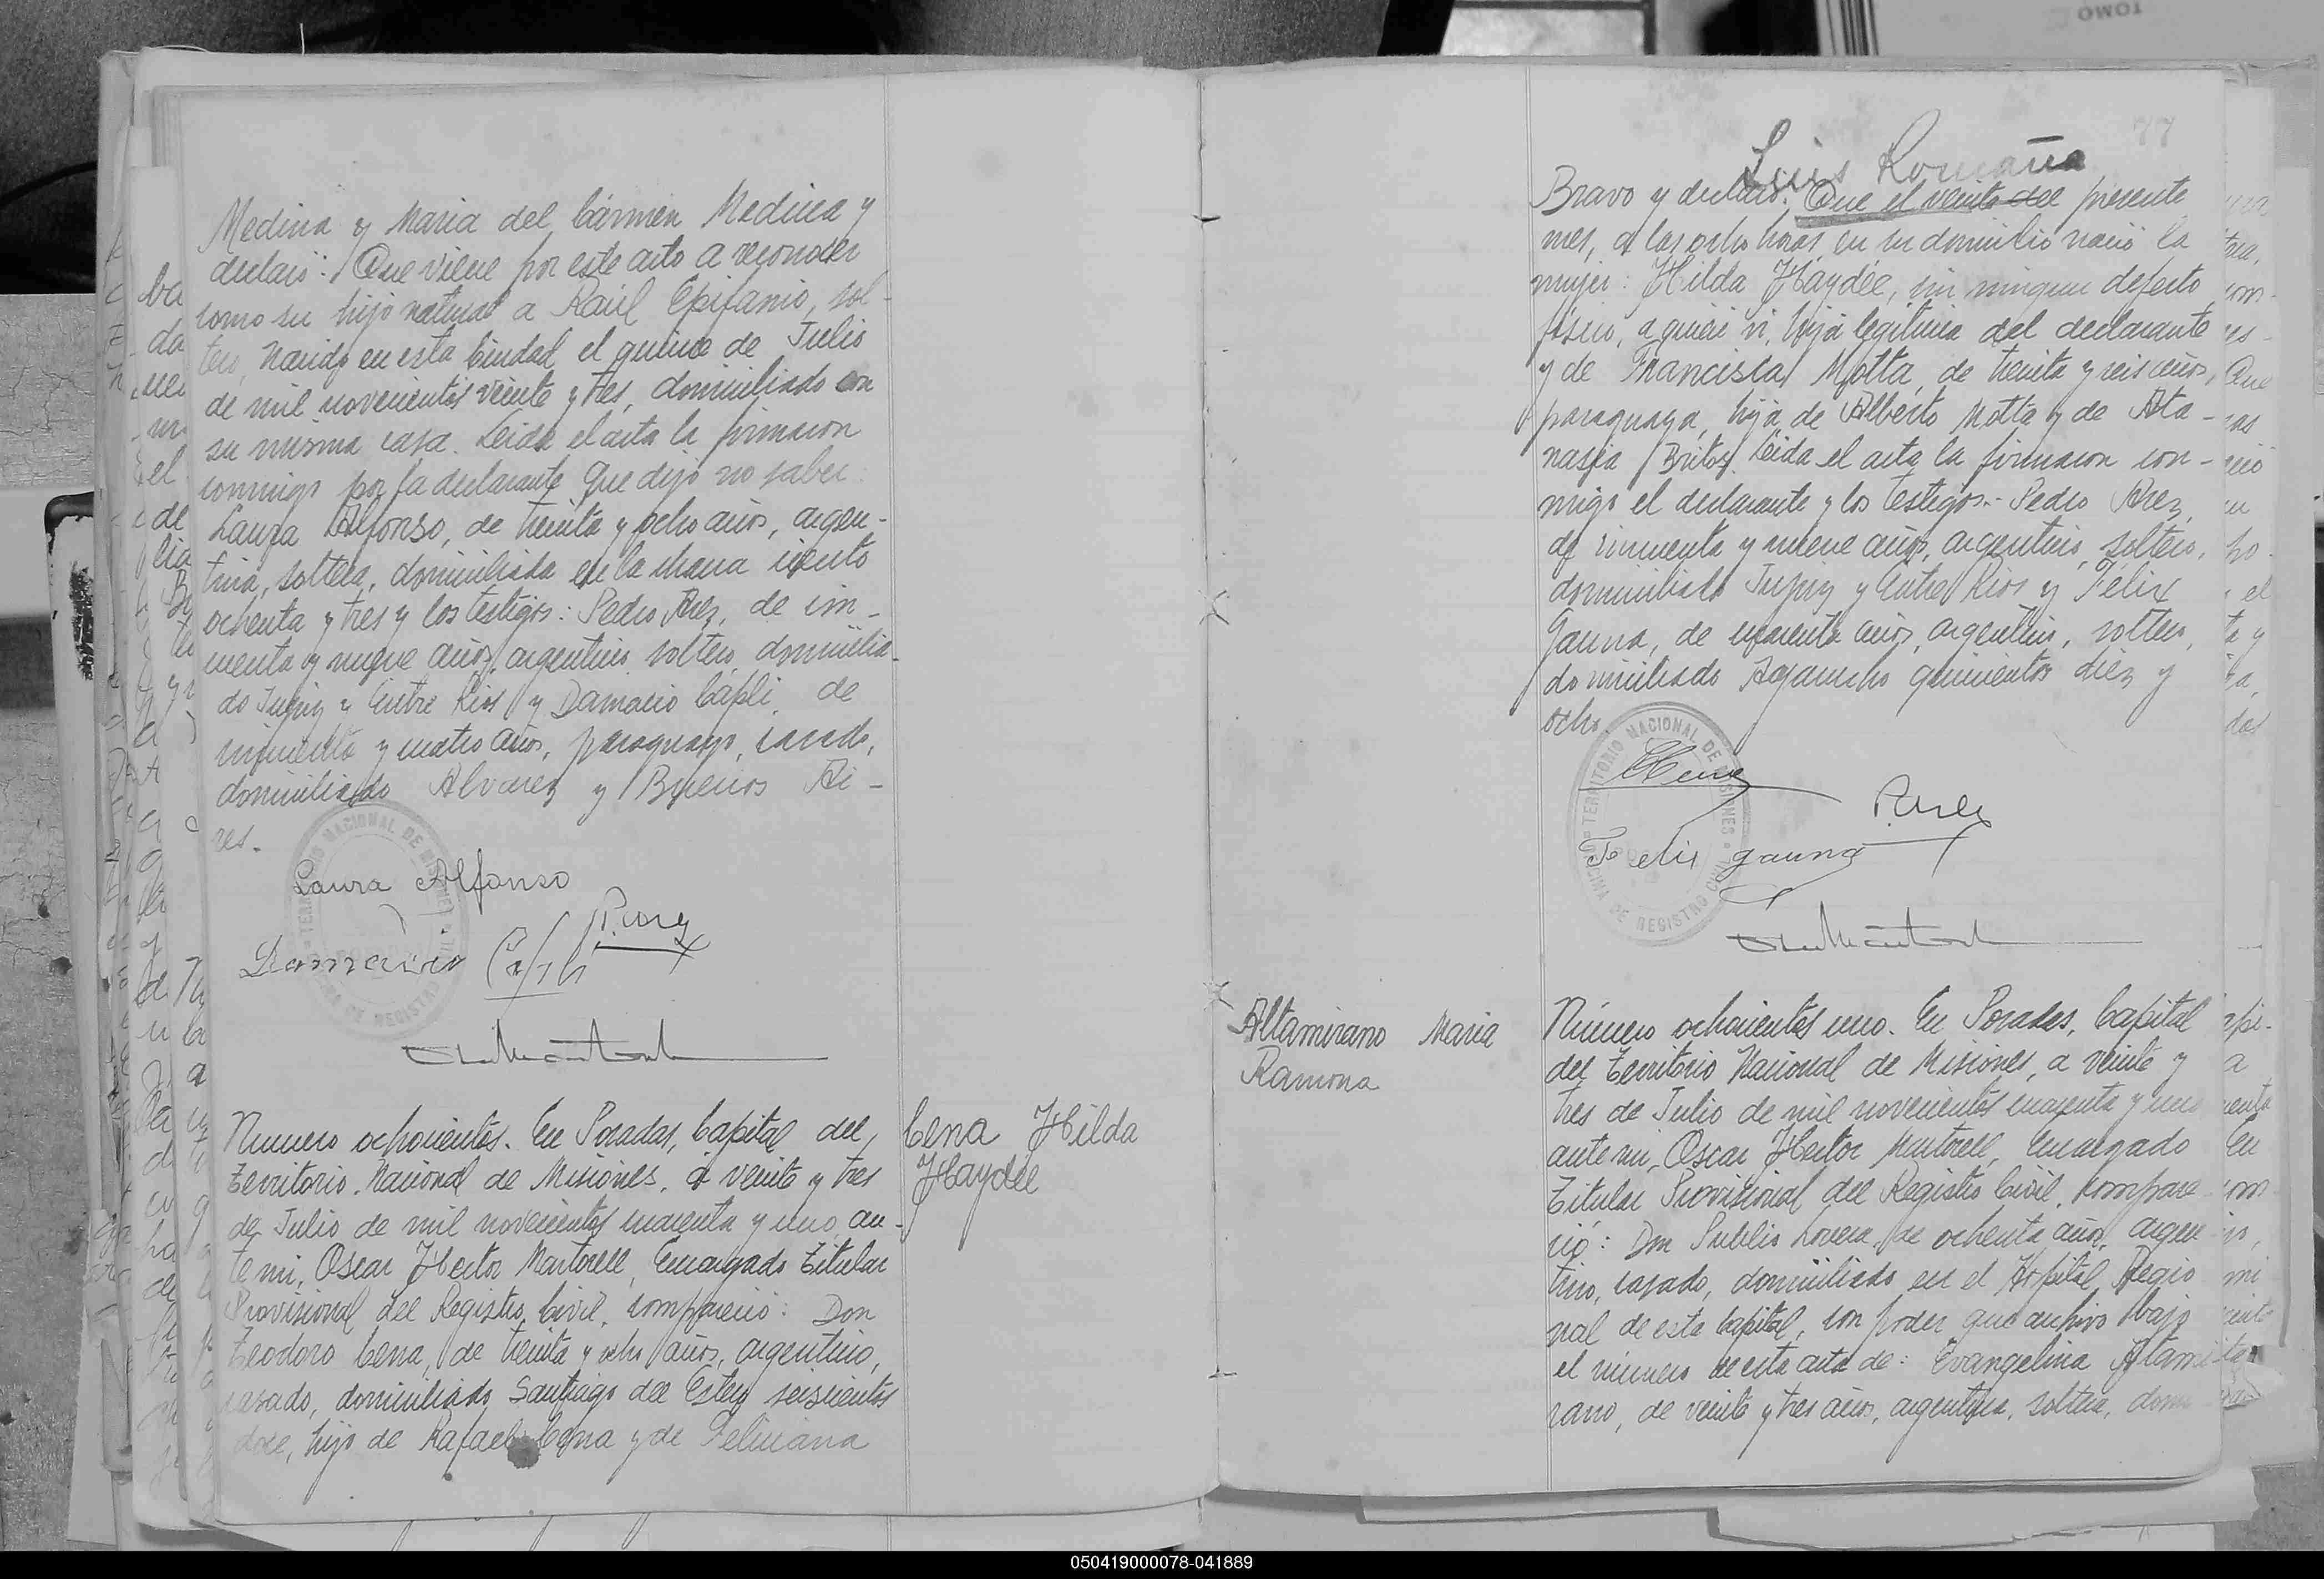 TOMO
Medina y Maria del Cármen Medina y
declaró: Que viene por este acto a reconocer
como su hijo natural a Raúl Epifanio, sol-
tero, nacido en esta Ciudad el quince de Julio
de mil novecientos veinte y tres, domiciliado en
su misma casa. Leida el acta la firmaron
conmigo por la declarante que dijo no saber
Laura Alfonso, de treinta y ocho años, argen-
tina, soltera, domiciliada en la chacra ciento
ochenta y tres y los testigos: Pedro Arez, de cin-
cuenta y nueve años, argentino, soltero, domicilia-
do Jujuy y Entre Rios y Damacio Capli, de
cincuenta y cuatro años, paraguayo, casado,
domiciliado Alvarez y Buenos Ai-
res.
TERRITORIO NACIONAL DE MISIONES
OFICINA DE REGISTRO CIVIL
Laura Alfonso
P. Arez
Damacio Capli
Número ochocientos. En Posadas, Capital del
Territorio Nacional de Misiones, a veinte y tres
de Julio de mil novecientos cuarenta y uno, an-
te mi, Oscar Hector Martorell, Encargado Titular
Provisional del Registro Civil, compareció: Don
Teodoro Cena, de treinta y ocho años, argentino,
casado, domiciliado Santiago del Estero seiscientos
doce, hijo de Rafael Cena y de Feliciana
Cena Hilda
Haydée
77
Luis Romaña
Bravo y declaró: Que el veinte del presente
mes, a las ocho horas, en su domicilio nació la
mujer: Hilda Haydée, sin ningun defecto
físico, a quien vi, hija legítima del declarante
y de Francisca Motta, de treinta y seis años,
paraguaya, hija de Alberto Motta y de Ata-
nasia Britos. Leida el acta la firmaron con-
migo el declarante y los testigos:- Pedro Arez,
de cincuenta y nueve años, argentino, soltero,
domiciliado Jujuy y Entre Rios y Félix
Gauna, de cuarenta años, argentino, soltero,
domiciliado Ayacucho quinientos diez y
ocho.
TERRITORIO NACIONAL DE MISIONES
OFICINA DE REGISTRO CIVIL
P. Arez
Felix gauna
Altamirano Maria
Ramona
Número ochocientos uno. En Posadas, Capital
del Territorio Nacional de Misiones, a veinte y
tres de Julio de mil novecientos cuarenta y uno
ante mi, Oscar Hector Martorell, Encargado
Titular Provisional del Registro Civil, compare
ció: Don Publio Lovera, de ochenta años, argen
tino, casado, domiciliado en el Hospital Regio
nal de esta Capital, con poder que archivo bajo
el número de esta acta de: Evangelina Altami
rano, de veinte y tres años, argentina, soltera, domi
050419000078-041889